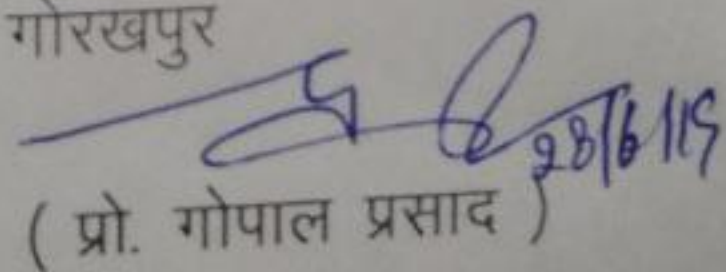 गोरखपुर
28/6/19
( प्रो. गोपाल प्रसाद )